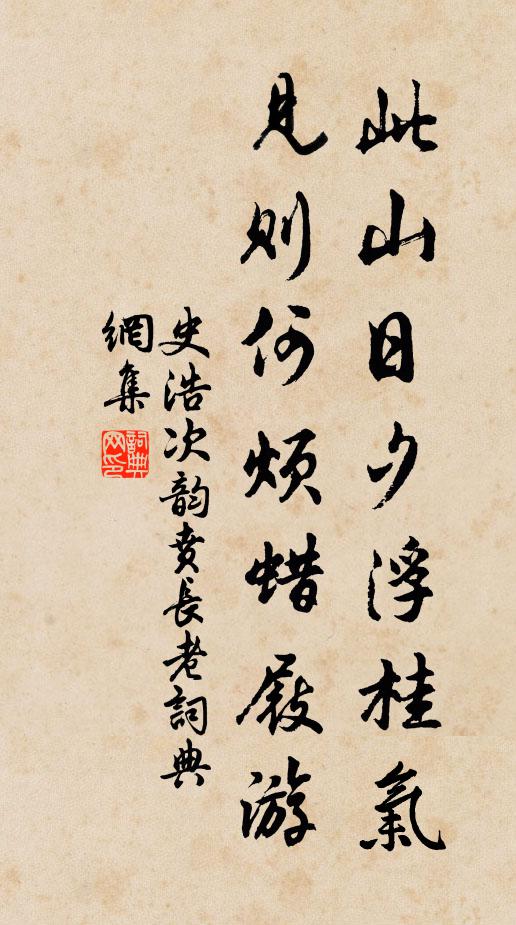 此山日夕浮桂氣
見則何煩蜡屐游
史浩次韵賁長老詞典
網集
詞典网印